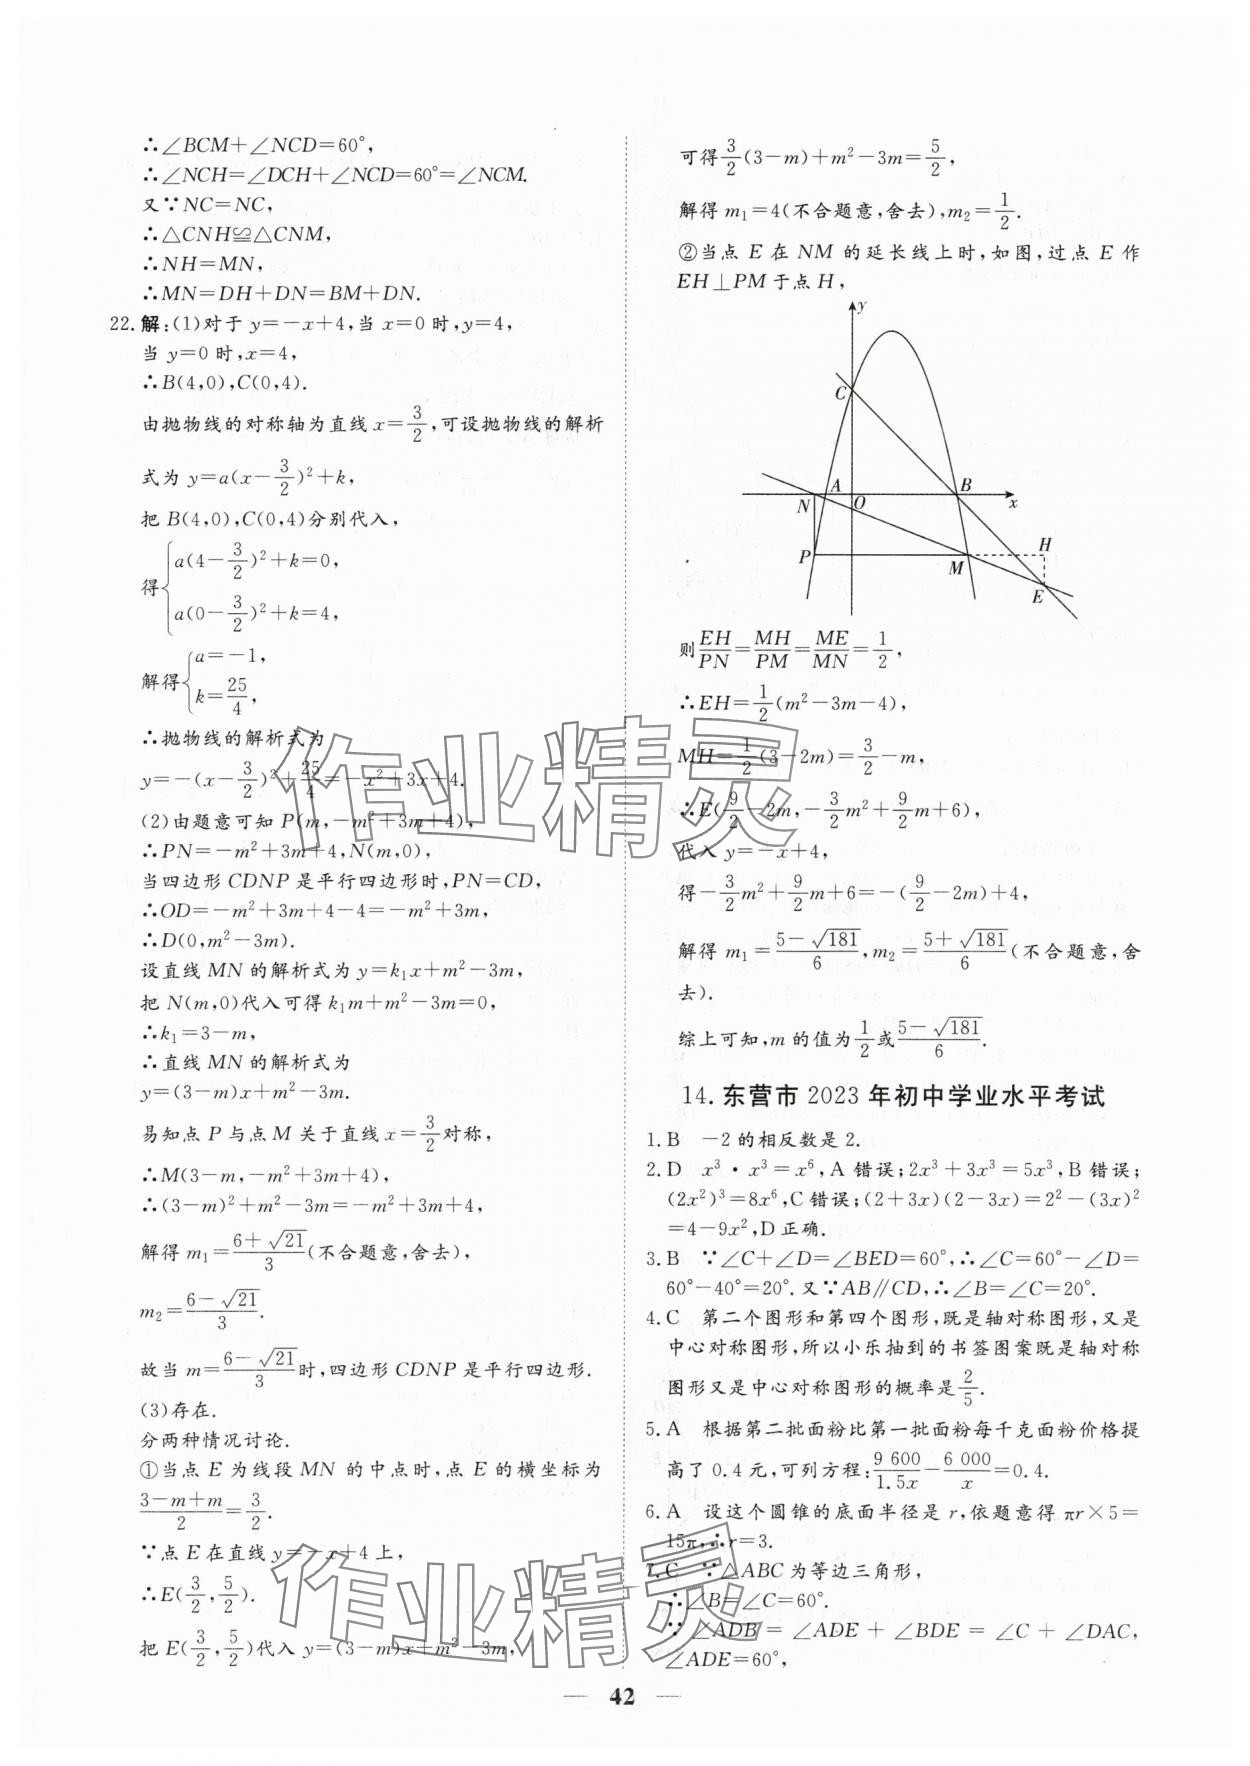 ∴∠BCM+∠NCD=60°,
∴∠NCH=∠DCH+∠NCD=60°=∠NCM.
又∵NC=NC,
∴△CNH≌△CNM,
∴NH=MN,
∴MN=DH+DN=BM+DN.
22.解:(1)对于 y=-x+4,当 x=0 时,y=4,
当 y=0 时,x=4,
∴B(4,0),C(0,4).
由抛物线的对称轴为直线 x=3/2,可设抛物线的解析
式为 y=a(x-3/2)²+k,
把 B(4,0),C(0,4)分别代入,
得{a(4-3/2)²+k=0,
a(0-3/2)²+k=4,
解得{a=-1,
k=25/4,
∴抛物线的解析式为
y=-(x-3/2)²+25/4=-x²+3x+4.
(2)由题意可知 P(m,-m²+3m+4),
∴PN=-m²+3m+4,N(m,0),
当四边形 CDNP 是平行四边形时,PN=CD,
∴OD=-m²+3m+4-4=-m²+3m,
∴D(0,m²-3m).
设直线 MN 的解析式为 y=k₁x+m²-3m,
把 N(m,0)代入可得 k₁m+m²-3m=0,
∴k₁=3-m,
∴直线 MN 的解析式为
y=(3-m)x+m²-3m.
易知点 P 与点 M 关于直线 x=3/2对称,
∴M(3-m,-m²+3m+4),
∴(3-m)²+m²-3m=-m²+3m+4,
解得 m₁=(6+√21)/3(不合题意,舍去),
m₂=(6-√21)/3.
故当 m=(6-√21)/3时,四边形 CDNP 是平行四边形.
(3)存在.
分两种情况讨论.
①当点 E 为线段 MN 的中点时,点 E 的横坐标为
(3-m+m)/2=3/2.
∵点 E 在直线 y=-x+4 上,
∴E(3/2,5/2).
把 E(3/2,5/2)代入 y=(3-m)x+m²-3m,
可得3/2(3-m)+m²-3m=5/2,
解得 m₁=4(不合题意,舍去),m₂=1/2.
②当点 E 在 NM 的延长线上时,如图,过点 E 作
EH⊥PM 于点 H,
y
C
A
B
N
O
x
P
M
H
E
则EH/PN=MH/PM=ME/MN=1/2,
∴EH=1/2(m²-3m-4),
MH=1/2(3-2m)=3/2-m,
∴E(9/2-2m,-3/2m²+9/2m+6),
代入 y=-x+4,
得-3/2m²+9/2m+6=-(9/2-2m)+4,
解得 m₁=(5-√181)/6,m₂=(5+√181)/6(不合题意,舍
去).
综上可知,m 的值为1/2或(5-√181)/6.
14. 东营市 2023 年初中学业水平考试
1. B -2 的相反数是 2.
2. D x³·x³=x⁶,A 错误;2x³+3x³=5x³,B 错误;
(2x²)³=8x⁶,C 错误;(2+3x)(2-3x)=2²-(3x)²
=4-9x²,D 正确.
3. B ∵∠C+∠D=∠BED=60°,∴∠C=60°-∠D=
60°-40°=20°. 又∵AB∥CD,∴∠B=∠C=20°.
4. C 第二个图形和第四个图形,既是轴对称图形,又是
中心对称图形,所以小乐抽到的书签图案既是轴对称
图形又是中心对称图形的概率是2/5.
5. A 根据第二批面粉比第一批面粉每千克面粉价格提
高了 0.4 元,可列方程:9 600/1.5x-6 000/x=0.4.
6. A 设这个圆锥的底面半径是 r,依题意得 πr×5=
15π,∴r=3.
7. C ∵△ABC 为等边三角形,
∴∠B=∠C=60°.
∵∠ADB=∠ADE+∠BDE=∠C+∠DAC,
∠ADE=60°,
作业精灵
作业精灵
— 42 —